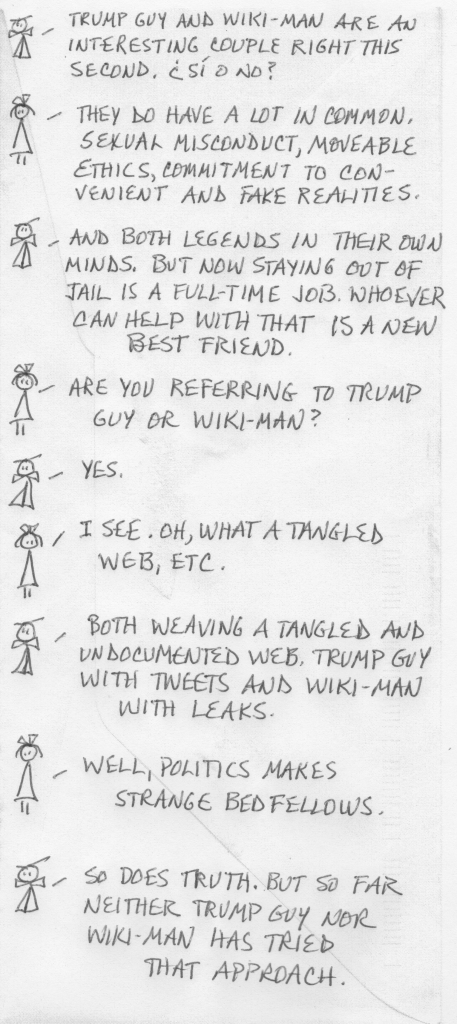 - TRUMP GUY AND WIKI-MAN ARE AN
INTERESTING COUPLE RIGHT THIS
SECOND. ¿SÍ O NO?
- THEY DO HAVE A LOT IN COMMON.
SEXUAL MISCONDUCT, MOVEABLE
ETHICS, COMMITMENT TO CON-
VENIENT AND FAKE REALITIES.
- AND BOTH LEGENDS IN THEIR OWN
MINDS. BUT NOW STAYING OUT OF
JAIL IS A FULL-TIME JOB. WHOEVER
CAN HELP WITH THAT IS A NEW
BEST FRIEND.
- ARE YOU REFERRING TO TRUMP
GUY OR WIKI-MAN?
- YES.
- I SEE. OH, WHAT A TANGLED
WEB, ETC.
- BOTH WEAVING A TANGLED AND
UNDOCUMENTED WEB. TRUMP GUY
WITH TWEETS AND WIKI-MAN
WITH LEAKS.
- WELL, POLITICS MAKES
STRANGE BEDFELLOWS.
- SO DOES TRUTH. BUT SO FAR
NEITHER TRUMP GUY NOR
WIKI-MAN HAS TRIED
THAT APPROACH.